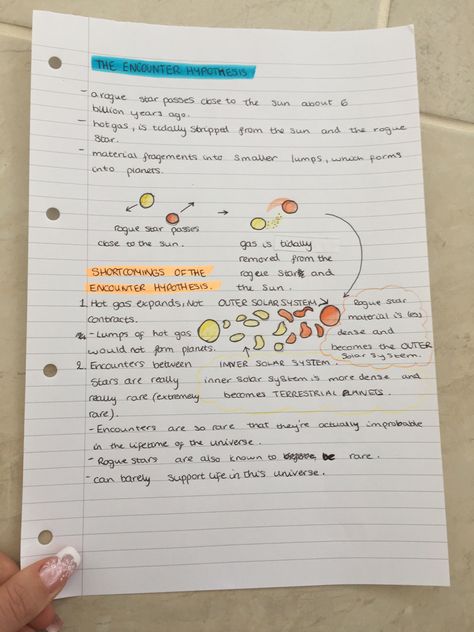 THE ENCOUNTER HYPOTHESIS
- a rogue star passes close to the sun about 6
billion years ago.
- hot gas, is tidally stripped from the sun and the rogue
star.
- material fragements into smaller lumps, which forms
into planets.
rogue star passes
close to the sun.
gas is tidally
removed from the
rogue star and
the sun.
SHORTCOMINGS OF THE
ENCOUNTER HYPOTHESIS.
1. Hot gas expands, not
contracts.
- Lumps of hot gas
would not form planets.
2. Encounters between
stars are really
really rare (extremely
rare).
OUTER SOLAR SYSTEM
Rogue star
material is less
dense and
becomes the OUTER
Solar System.
INNER SOLAR SYSTEM.
inner solar system is more dense and
becomes TERRESTRIAL PLANETS.
- Encounters are so rare that they're actually improbable
in the lifetime of the universe.
- Rogue stars are also known to be rare.
- can barely support life in this universe.